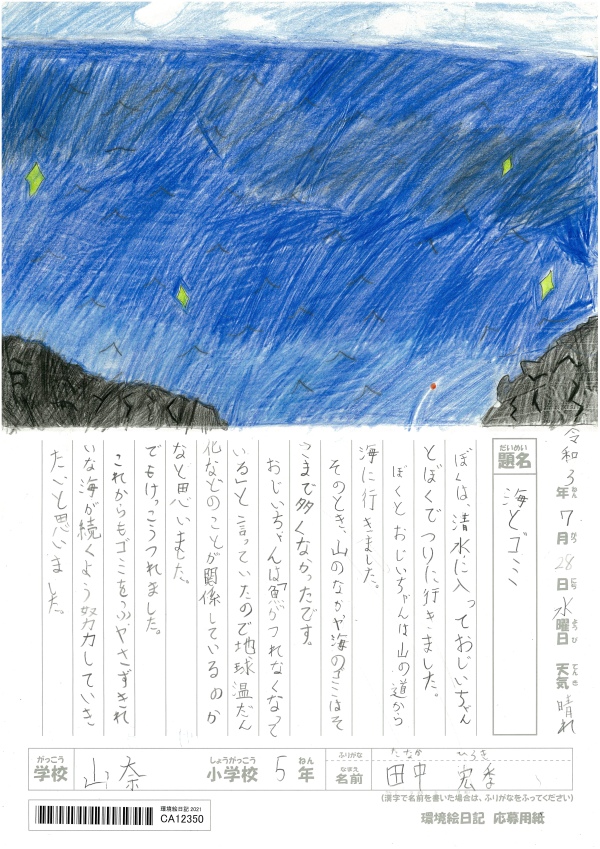 令和3年7月28日水曜日 天気 晴れ
ねん がつ にち ようび てんき
だいめい
題名
海とゴミ
ぼくは、清水に入っておじいちゃん
とぼくでつりに行きました。
ぼくとおじいちゃんは山の道から
海に行きました。
そのとき、山のなかや海のゴミはそ
こまで多くなかったです。
おじいちゃんは「魚がつれなくなって
いる」と言っていたので地球温だん
化などのことが関係しているのか
なと思いました。
でもけっこうつれました。
これからもゴミをふやさずきれ
いな海が続くよう努力していき
たいと思いました。
がっこう
学校
山奈
しょうがっこう
小学校
5
ねん
年
ふりがな
たなか ひろき
なまえ
名前
田中
(漢字で名前を書いた場合は、ふりがなをふってください)
環境絵日記2021
CA12350
環境絵日記 応募用紙